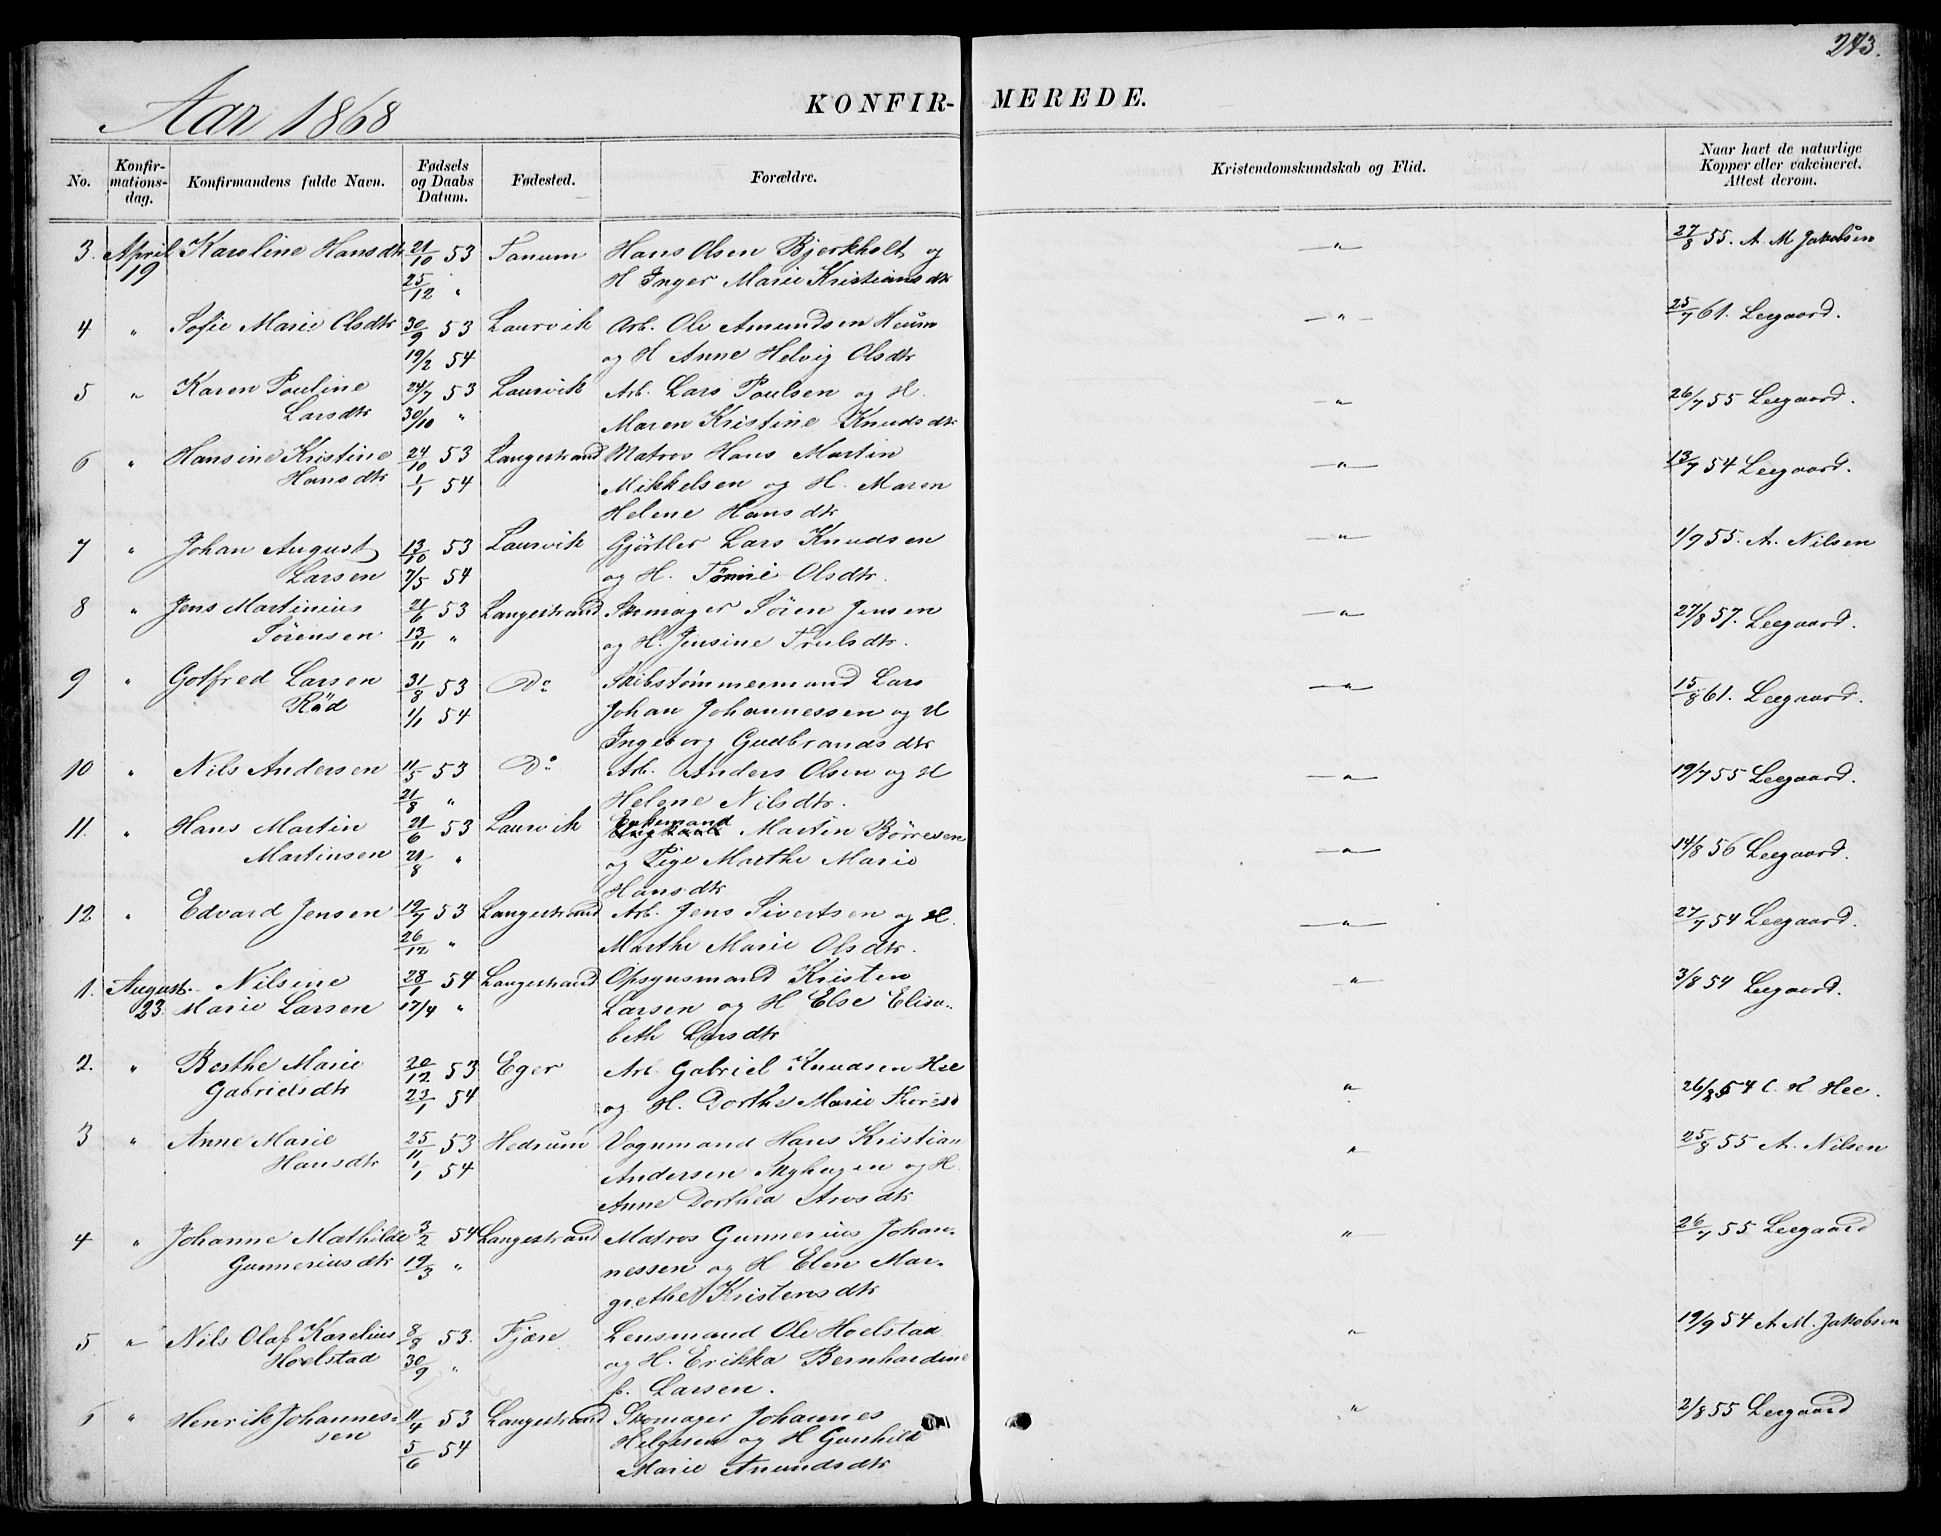 273.
Aar 1868
KONFIR- MEREDE.
No. Konfir-mations-dag. Konfirmandens fulde Navn. Fødsels og Daabs Datum. Fødested. Forældre. Kristendomskundskab og Flid. Naar havt de naturlige Kopper eller vakcineret. Attest derom.
3. April Karoline Hansdtr 21/10 53 Tanum Hans Olsen Bjerkholt og — " — 27/8 55. A. M. Jakobsen
19 25/12 " H Inger Marie Kristiansdtr
4 " Sofie Marie Olsdtr 30/9 53 Laurvik Arb. Ole Amundsen Heum — " — 25/7 61. Leegaard.
19/2 54 og H Anne Helvig Olsdtr
5 " Karen Pouline 24/7 53 Laurvik Arb. Lars Poulsen og H. — " — 26/7 55 Leegaard.
Larsdtr 30/10 " Maren Kristine Knudsdtr
6 " Hansine Kristine 24/10 53 Langestrand Matros Hans Martin — " — 13/7 54 Leegaard.
Hansdtr 1/1 54 Mikkelsen og H. Maren
Helene Hansdtr
7 " Johan August 13/10 53 Laurvik Gjørtler Lars Knudsen — " — 1/9 55. A. Nilsen
Larsen 7/5 54 og H. Tømie Olsdtr.
8 " Jens Martinius 21/6 53 Langestrand Skomager Søren Jensen — " — 27/8 57. Leegaard.
Sørensen 13/11 " og H. Jensine Trulsdtr.
9 " Gotfred Larsen 31/8 53 Do Skibstømmermand Lars — " — 15/8 61. Leegaard.
Röd 1/1 54 Johan Johannessen og H
Ingeborg Gudbrandsdtr
10 " Nils Andersen 11/5 53 Do Arb. Anders Olsen og H — " — 19/7 55 Leegaard.
21/8 " Helene Nilsdtr.
11. " Hans Martin 21/6 53 Laurvik Enkemand Martin Börresen — " — 14/8 56 Leegaard.
Martinsen 21/8 " og Pige Marthe Marie
Hansdtr
12 " Edvard Jensen 12/7 53 Langestrand Arb. Jens Sivertsen og H. — " — 27/7 54 Leegaard.
26/12 " Marthe Marie Olsdtr.
1. August Nilsine 28/1 54 Langestrand Opsynsmand Kristen " — 3/8 54 Leegaard.
23 Marie Larsen 17/4 " Larsen og H Else Elisa-
beth Larsdtr
2. " Berthe Marie 20/12 53 Eger Arb. Gabriel Knudsen Hee " 26/8 54 C. H Hee.
Gabrielsdtr 23/1 54 og H. Dorthe Marie
3 " Anne Marie 25/11 53 Hedrum Vognmand Hans Kristian " 25/8 55 A. Nilsen
Hansdtr 1/1 54 Andersen Skyhagen og H.
Anne Dorthea Arosdtr
4 " Johanne Mathilde 3/2 54 Langestrand Matros Gunnerius Johan- " — 26/7 55 Leegaard
Gunneriusdtr 19/3 " nessen og H Elen Mar-
grethe Kristensdtr
5 " Nils Olaf Karelius 8/8 53. Fjære Lensmand Ole Hoelstad " 19/9 54 A. M. Jakobsen
Hoelstad 30/9 " og H. Erikka Bernhardine
f. Larsen.
6 " Henrik Johannes- 11/4 53 Langestrand Skomager Johannes " 2/8 55 Leegaard
sen 5/6 54 Helgesen og H Gunhild
Marie Amundsdtr